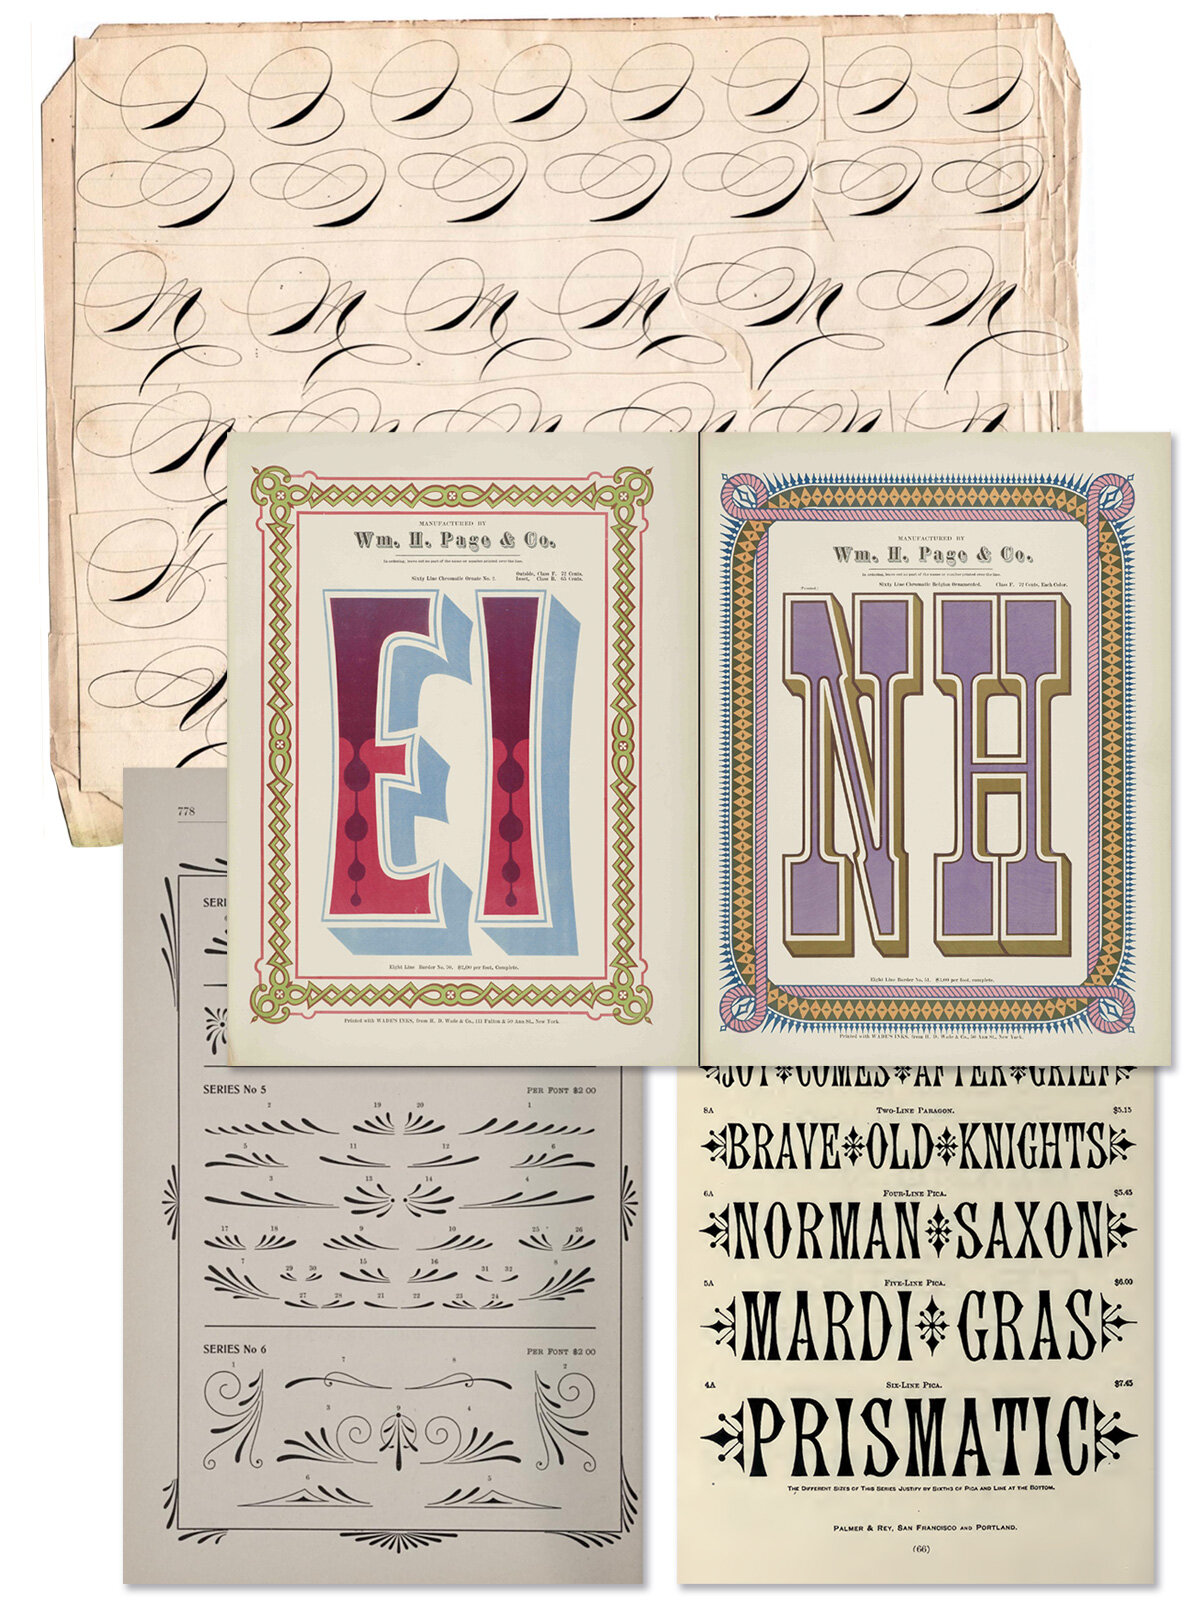 MANUFACTURED BY
Wm. H. Page & Co.
In ordering, leave out no part of the name or number printed over the line.
Outside, Class F. 72 Cents.
Sixty Line Chromatic Ornate No. 2. Inset, Class B. 65 Cents.
EI
Eight Line Border No. 50, $2,00 per foot, Complete.
Printed with WADE'S INKS, from H. D. Wade & Co., 50 Ann St., New York.
MANUFACTURED BY
Wm. H. Page & Co.
In ordering, leave out no part of the name or number printed over the line.
Sixty Line Chromatic Belgian Ornamented. Class F. 72 Cents, Each Color.
NH
Eight Line Border No. 51, $3,00 per foot, complete.
Printed with WADE'S INKS, from H. D. Wade & Co., 50 Ann St., New York.
778
SERI
SERIES No 5 PER FONT $2 00
2 19 20 1
5 11 12 6
3 13 14 4
17 18 9 10 25 26
7 29 30 15 16 31 32 8
27 28 21 22 23 24
SERIES No 6 PER FONT $2 00
1 7 8 2
3 9 4
6 5
JOY COMES AFTER GRIEF
8A Two-Line Paragon. $5.15
BRAVE OLD KNIGHTS
6A Four-Line Pica. $5.45
NORMAN SAXON
5A Five-Line Pica. $6.00
MARDI GRAS
4A Six-Line Pica. $7.45
PRISMATIC
The Different Sizes of This Series Justify by Sixths of Pica and Line at the Bottom.
Palmer & Rey, San Francisco and Portland.
(66)